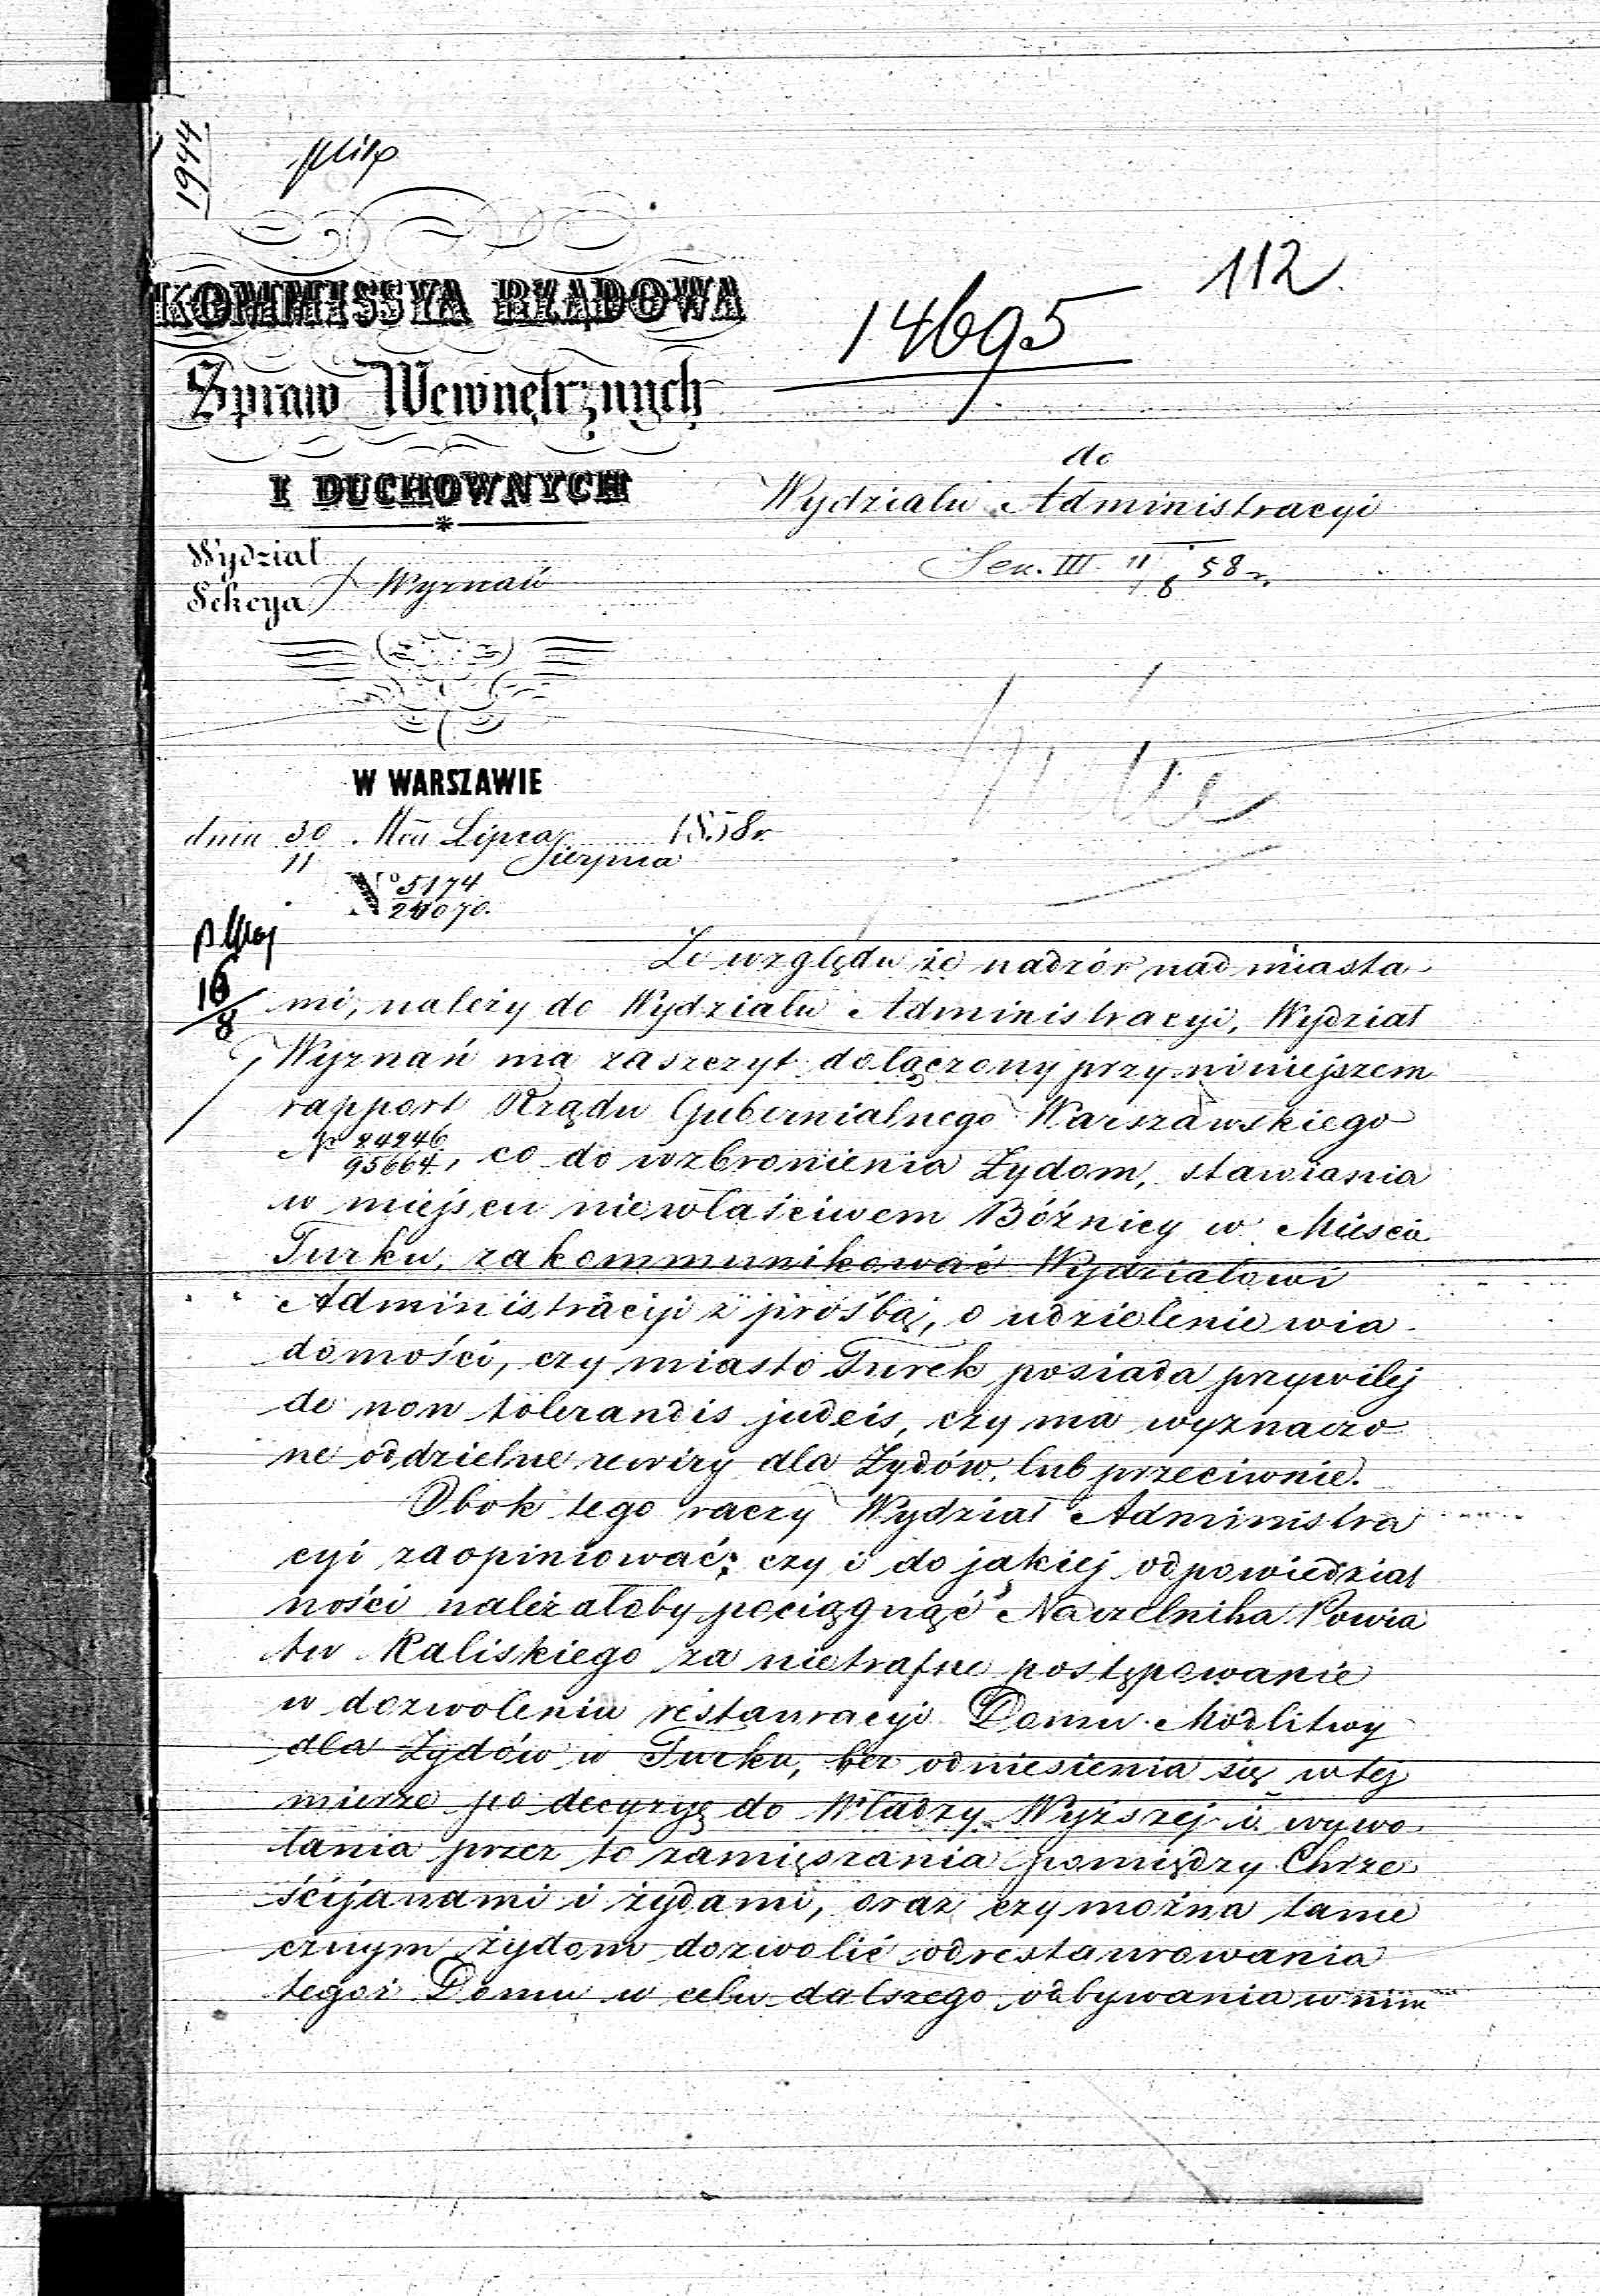 1944.
112.
14695
KOMMISSYA RZĄDOWA
Spraw Wewnętrznych
I DUCHOWNYCH
do
Wydziału Administracyi
Wydział
Sekcya
Wyznań
Sek. III 11/8 58 r.
W WARSZAWIE
dnia 30 Mca Lipca 1858 r.
11 Sierpnia
No 5174
24070.
16/8
Ze względu że nadzór nad miasta-
mi, należy do Wydziału Administracyi, Wydział
Wyznań ma zaszczyt dołączony przy niniejszem
rapport Rządu Gubernialnego Warszawskiego
No 84246/95664, co do wzbronienia Żydom, stawiania
w miejscu niewłaściwem Bóźnicy w Mieście
Turku, zakommunikować Wydziałowi
Administracyi z prośbą, o udzielenie wia-
domości, czy miasto Turek posiada przywilej
de non tolerandis judeis, czy ma wyznaczo
ne oddzielne rewiry dla Żydów, lub przeciwnie.
Obok tego raczy Wydział Administra
cyi zaopiniować; czy i do jakiej odpowiedzial
ności należałoby pociągnąć Naczelnika Powia
tu Kaliskiego za nietrafne postępowanie
w dozwoleniu restauracyi Domu Modlitwy
dla Żydów w Turku, bez odniesienia się w tej
mierze po decyzyę do Władzy Wyższej i wywo
łania przez to zamięszania pomiędzy Chrze
ścijanami i żydami, oraz czy można tame
cznym żydom dozwolić odrestaurowania
tegoż Domu w celu dalszego odbywania w nim